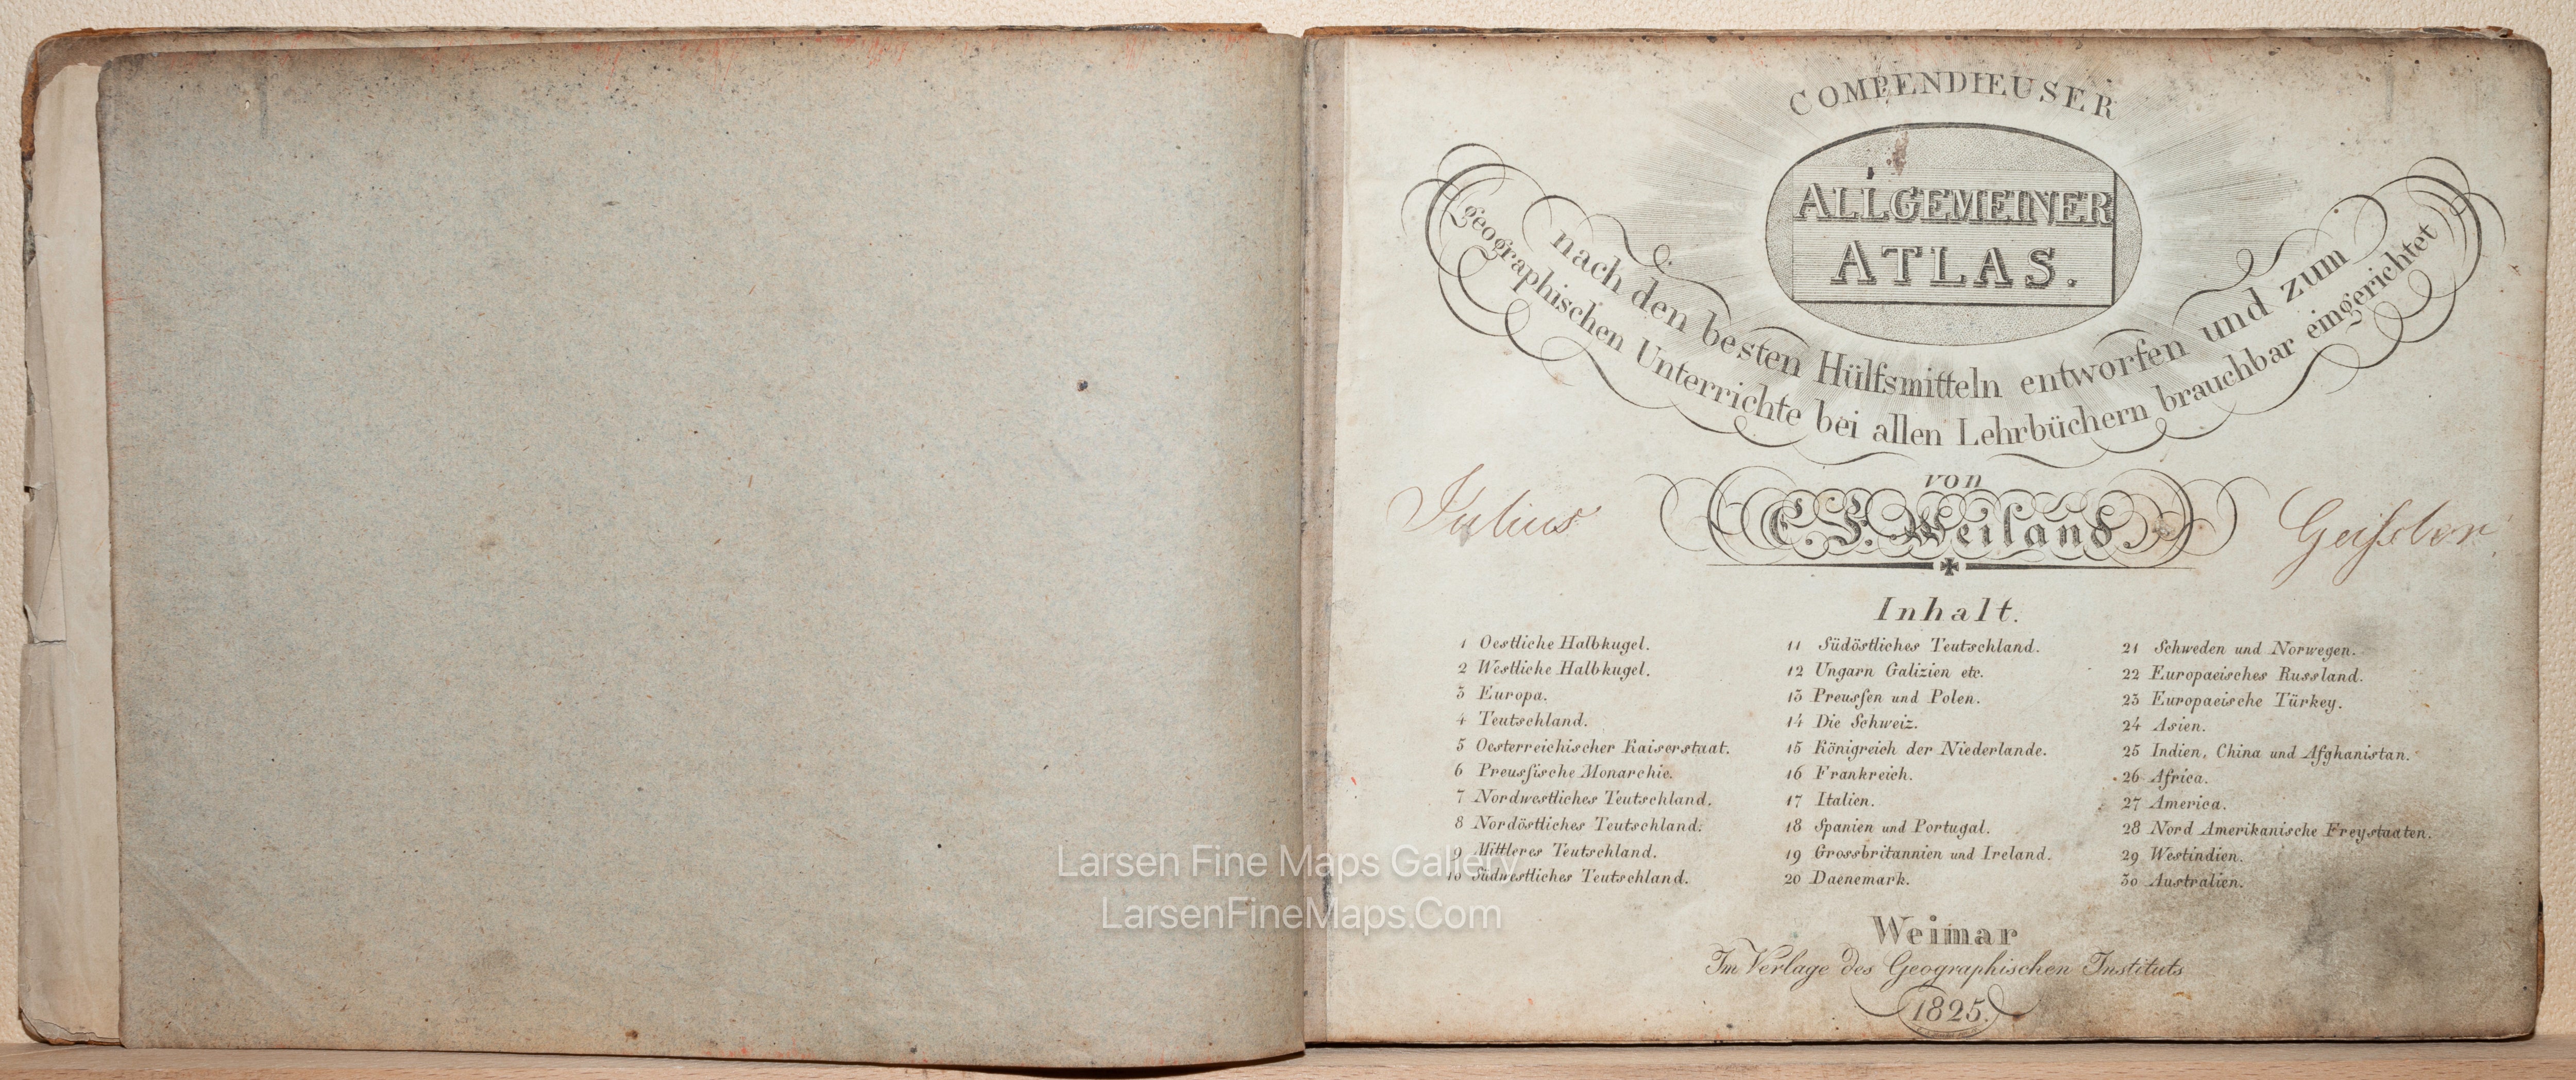 COMPENDIEUSER
ALLGEMEINER
ATLAS.
nach den besten Hülfsmitteln entworfen und zum
geographischen Unterrichte bei allen Lehrbüchern brauchbar eingerichtet
von
C. F. Weiland
Julius Geißler
Inhalt.
1 Oestliche Halbkugel.
2 Westliche Halbkugel.
3 Europa.
4 Teutschland.
5 Oesterreichischer Kaiserstaat.
6 Preusſische Monarchie.
7 Nordwestliches Teutschland.
8 Nordöstliches Teutschland.
9 Mittleres Teutschland.
10 Südwestliches Teutschland.
11 Südöstliches Teutschland.
12 Ungarn Galizien etc.
13 Preusſen und Polen.
14 Die Schweiz.
15 Königreich der Niederlande.
16 Frankreich.
17 Italien.
18 Spanien und Portugal.
19 Grossbritannien und Ireland.
20 Daenemark.
21 Schweden und Norwegen.
22 Europaeisches Russland.
23 Europaeische Türkey.
24 Asien.
25 Indien, China und Afghanistan.
26 Africa.
27 America.
28 Nord Amerikanische Freystaaten.
29 Westindien.
30 Australien.
Weimar
Im Verlage des Geographischen Instituts
1825.
Larsen Fine Maps Gallery
LarsenFineMaps.Com